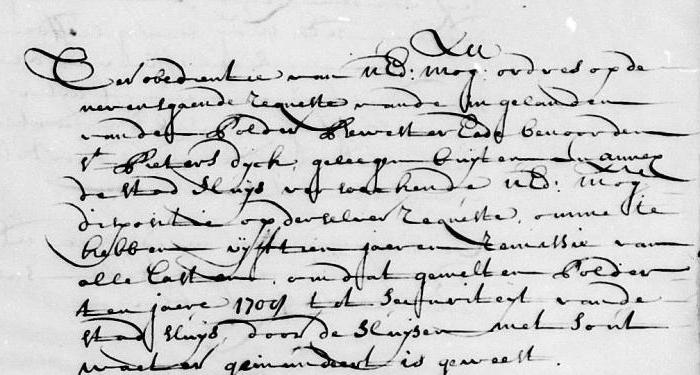 Ter obedientie van UEd: Mog: ordres op de
nevensgaende Requeste vande Ingelanden
vanden Polder Bewester Eede benoorden
St Pieters Dyck, geleegen buyten en annex
de stad Sluys versoekende UEd: Mog:
dispositie op derselver Requeste, omme te
hebben vijfftien jaeren Remissie van
alle lasten, omdat gemelten Polder
ten jaere 1709 tot securiteyt vande
stad Sluys, door de Sluysen met sout
water geinundeert is geweest.